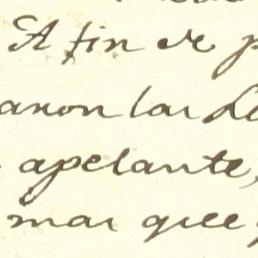 A fin de p
anon las De
apelante,
mas que